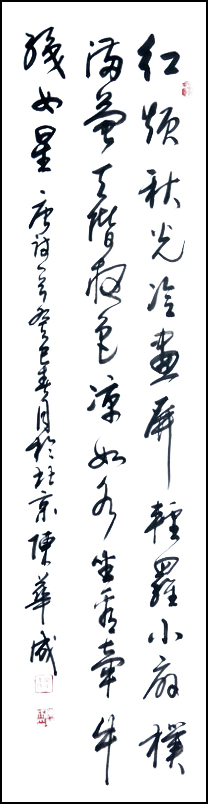 紅燭秋光冷畫屏輕羅小扇撲
流螢天階夜色涼如水坐看牽牛
織女星 唐詩一首癸巳春月於北京陳華成